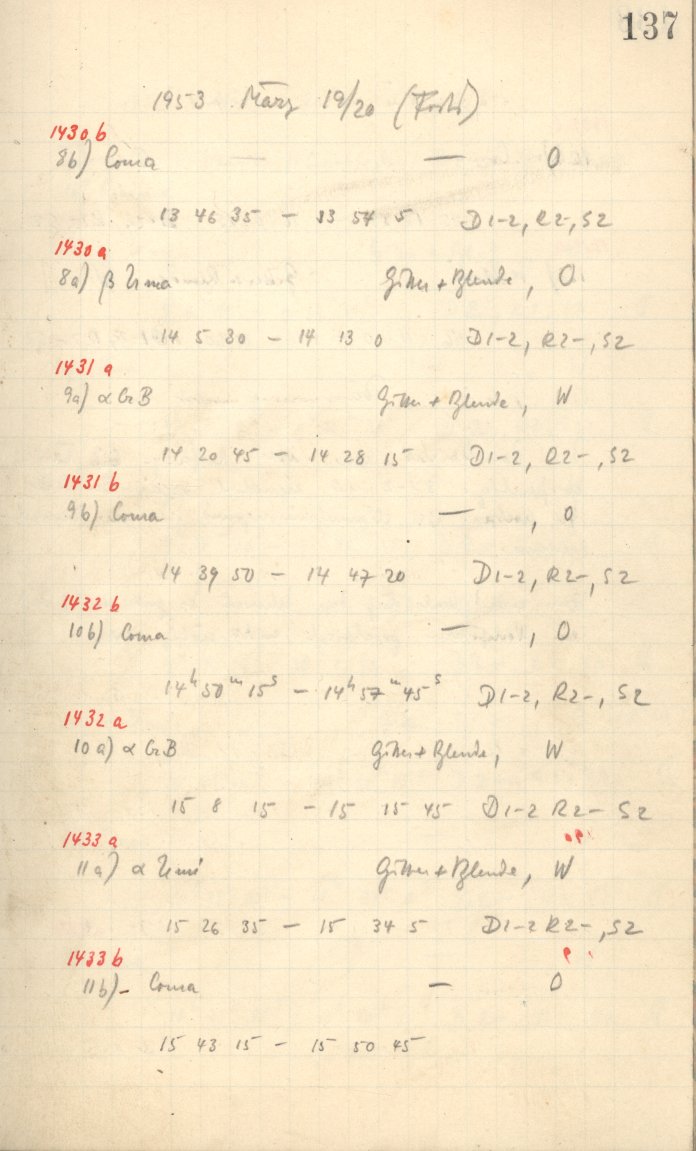 137
1953 März 19/20 (Forts)
1430 b
8b) Coma — O
13 46 35 — 13 54 5 D1-2, R2-, S2
1430 a
8a) β Uma Gitter + Blende, O
14 5 30 — 14 13 0 D1-2, R2-, S2
1431 a
9a) α CrB Gitter + Blende, W
14 20 45 — 14 28 15 D1-2, R2-, S2
1431 b
9b) Coma — , O
14 39 50 — 14 47 20 D1-2, R2-, S2
1432 b
10b) Coma — , O
14h 50m 15s — 14h 57m 45s D1-2, R2-, S2
1432 a
10a) α CrB Gitter + Blende, W
15 8 15 — 15 15 45 D1-2 R2- S2
1433 a
11a) α Umi Gitter + Blende, W
15 26 35 — 15 34 5 D1-2 R2-, S2
1433 b
11b)- Coma — O
15 43 15 — 15 50 45